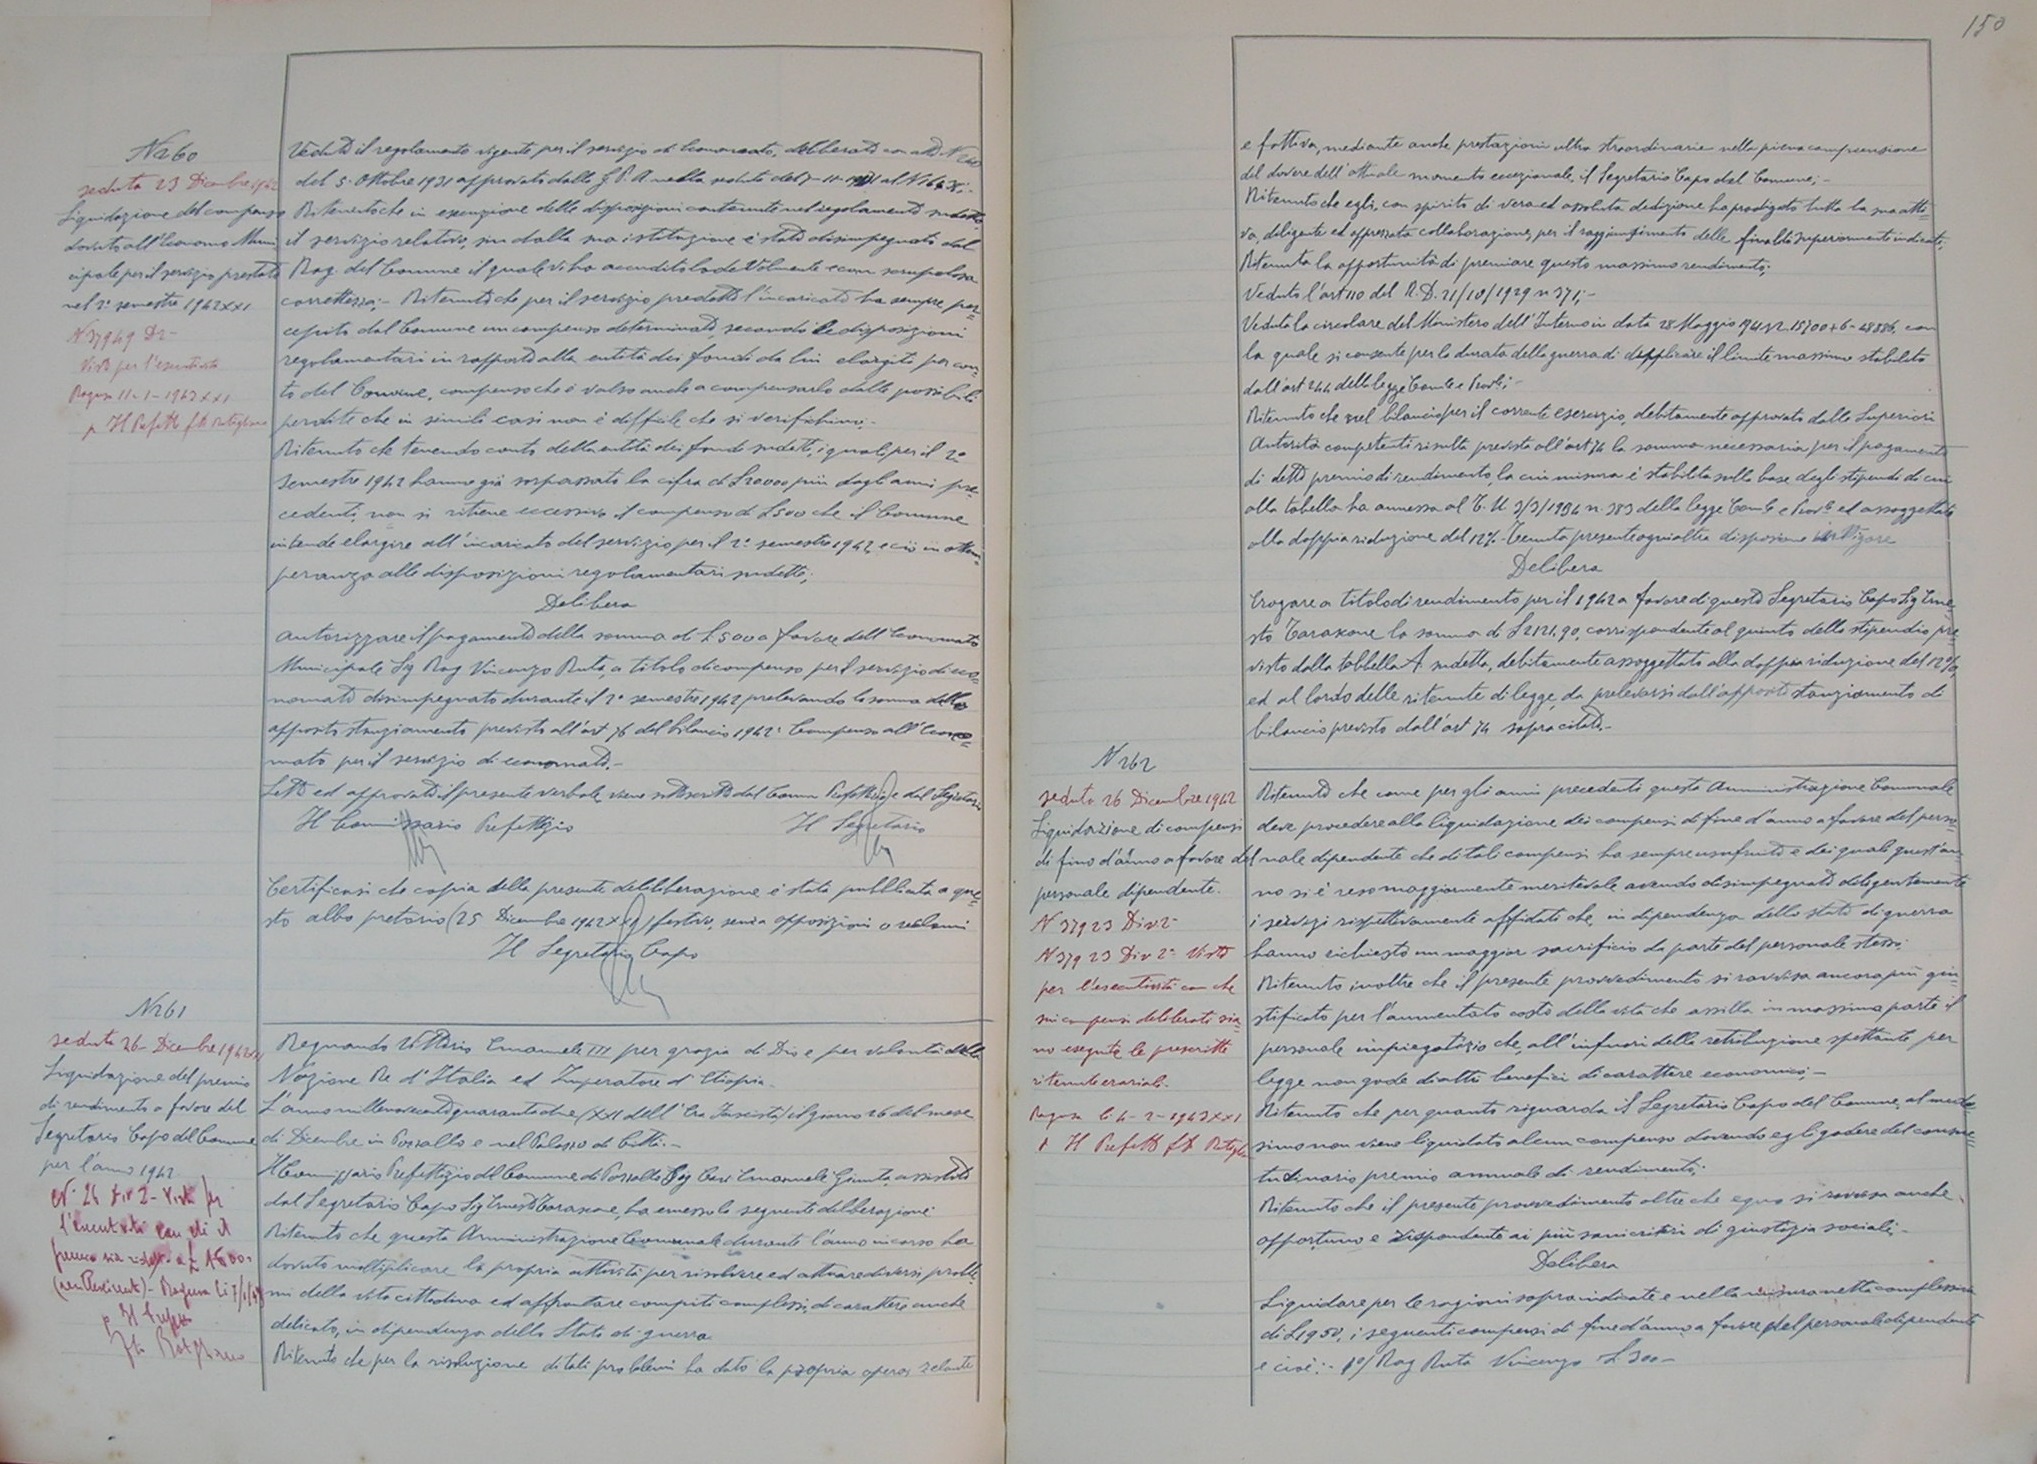 150
N 260
seduta 23 Dicembre 1942
Liquidazione del compenso
dovuto all'Economo Muni
cipale per il servizio prestato
nel 2° semestre 1942 XXI
N 37949 D2-
Visto per l'esecutività
Ragusa 11-1-1943 XXI
p Il Prefetto
Veduto il regolamento vigente per il servizio di Economato, deliberato con atto N 240
del 5. Ottobre 1931 approvato dalla G. P. A nella seduta del
Ritenuto che in esecuzione delle disposizioni contenute nel regolamento sudetto
il servizio relativo, sin dalla sua istituzione è stato disimpegnato dal
Rag. del Comune il quale vi ha accudito lodevolmente e con scrupolosa
correttezza;- Ritenuto che per il servizio predetto l'incaricato ha sempre per=
cepito dal Comune un compenso determinato, secondo le disposizioni
regolamentari in rapporto alla entità dei fondi da lui elargiti per con=
to del Comune, compenso che è valso anche a compensarlo dalle possibili
perdite che in simili casi non è difficile che si verifichino.-
Ritenuto che tenendo conto della entità dei fondi sudetti, i quali, per il 2°
semestre 1942 hanno già sorpassato la cifra di £20000, più dagli anni pre=
cedenti, non si ritiene eccessivo il compenso di £500 che il Comune
intende elargire all'incaricato del servizio per il 2° semestre 1942, e ciò in ottem=
peranza alle disposizioni regolamentari sudette;
Delibera
Autorizzare il pagamento della somma di £500 a favore dell'Economato
Municipale Sig Rag Vincenzo Ruta, a titolo di compenso per il servizio di eco=
nomato disimpegnato durante il 2° semestre 1942 prelevando la somma dallo
apposito stanziamento previsto all'art 76 del bilancio 1942: Compenso all'Econo=
mato per il servizio di economato.-
Letto ed approvato il presente verbale viene sottoscritto dal Comm Prefettizio e dal Segretario
Il Commissario Prefettizio Il Segretario
Certificasi che copia della presente deliberazione è stata pubblicata a que=
sto albo pretorio (25 Dicembre 1942 XXI) festivo, senza opposizioni o reclami
Il Segretario Capo
N 261
seduta 26 Dicembre 1942 XXI
Liquidazione del premio
di rendimento a favore del
Segretario Capo del Comune
per l'anno 1942
N. 26 Div 2- Visto per
l'esecutività con che il
premio sia ridotto a £
Ragusa li
p Il Prefetto
Regnando Vittorio Emanuele III per grazia di Dio e per volontà della
Nazione Re d'Italia ed Imperatore d'Etiopia.
L'anno millenovecentoquarantadue (XXI dell'Era Fascista) il giorno 26 del mese
di Dicembre in Pozzallo e nel Palazzo di Città.-
Il Commissario Prefettizio del Comune di Pozzallo Sig Cav Emanuele Giunta, assistito
dal Segretario Capo Sig Ernesto Tarascone, ha emesso la seguente deliberazione:
Ritenuto che questa Amministrazione Comunale durante l'anno in corso ha
dovuto moltiplicare la propria attività per risolvere ed attuare diversi proble=
mi della vita cittadina ed affrontare compiti complessi, di carattere anche
delicato, in dipendenza dello Stato di guerra
Ritenuto che per la risoluzione di tali problemi ha dato la propria opera, zelante
e fattiva, mediante anche prestazioni ultra straordinarie nella piena comprensione
del dovere dell'attuale momento eccezionale, il Segretario Capo del Comune;-
Ritenuto che egli, con spirito di vera ed assoluta dedizione ha prodigato tutta la sua atti=
va, diligente ed apprezzata collaborazione, per il raggiungimento delle finalità superiormente indicate;
Ritenuta la opportunità di premiare questo massimo rendimento;
Veduto l'art 110 del R. D. 21/10/1929 n 371;-
Veduta la circolare del Ministero dell'Interno in data 28 Maggio con
la quale si consente per la durata della guerra di disapplicare il limite massimo stabilito
dall'art 244 della legge Comle e Prov;-
Ritenuto che nel bilancio per il corrente esercizio, debitamente approvato dalle Superiori
Autorità competenti risulta previsto all'art 74 la somma necessaria per il pagamento
di detto premio di rendimento, la cui misura è stabilita sulla base degli stipendi di cui
alla tabella ha annessa al T. U 3/3/1934 n. 383 della legge Comle e Provle ed assoggettato
alla doppia riduzione del 12%.- Tenuta presente ogni altra disposizione in Vigore
Delibera
Erogare a titolo di rendimento per il 1942 a favore di questo Segretario Capo Sig Erne=
sto Tarascone la somma di £2121,90, corrispondente al quinto dello stipendio pre=
visto dalla tabbella A sudetta, debitamente assoggettato alla doppia riduzione del 12%,
ed al lordo delle ritenute di legge, da prelevarsi dall'apposito stanziamento di
bilancio previsto dall'art 74 sopra citato.-
N 262
seduta 26 Dicembre 1942
Liquidazione di compensi
di fine d'anno a favore del
personale dipendente.
N 37923 Div 2-
N 37923 Div 2- Visto
per l'esecutività con che
sui compensi deliberati sia=
no eseguite le prescritte
ritenute erariali.
Ragusa li 4-2-1943 XXI
p Il Prefetto
Ritenuto che come per gli anni precedenti questa Amministrazione Comunale
deve procedere alla liquidazione dei compensi di fine d'anno a favore del perso=
nale dipendente che di tali compensi ha sempre usufruito e dei quali quest'an=
no si è reso maggiormente meritevole avendo disimpegnato diligentemente
i servizi rispettivamente affidati che, in dipendenza dello stato di guerra
hanno richiesto un maggior sacrificio da parte del personale stesso;
Ritenuto inoltre che il presente provvedimento si ravvisa ancora più giu=
stificato per l'aumentato costo della vita che assilla in massima parte il
personale impiegatizio che, all'infuori della retribuzione spettante per
legge non gode di altri benefici di carattere economico;-
Ritenuto che per quanto riguarda il Segretario Capo del Comune, al mede=
simo non viene liquidato alcun compenso dovendo egli godere del consue=
tudinario premio annuale di rendimento;
Ritenuto che il presente provvedimento oltre che equo si ravvisa anche
opportuno e rispondente ai più sani criteri di giustizia sociale;-
Delibera
Liquidare per le ragioni sopra indicate e nella misura netta complessiva
di £1950, i seguenti compensi di fine d'anno a favore del personale dipendente
e cioè:- 1°/ Rag Ruta Vincenzo £ 300-